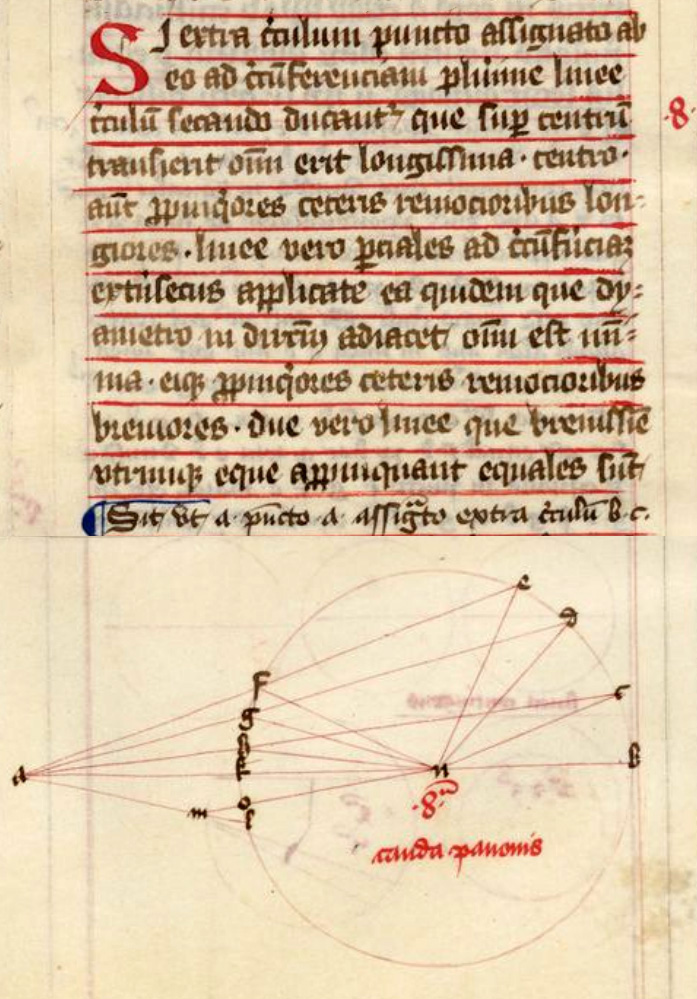 SI extra c̄culum puncto assignato ab
eo ad c̄cūferenciam plurime linee
c̄culū secando ducant᷑ que sup̱ centrū
transierit om̄i erit longissima · centro ·
aūt ꝓpinq̇ores ceteris remocioribus lon=
giores · linee vero ꝑciales ad c̄cūfēciaꝫ
extīsecus applicate ea quidem que dy=
ametro in dirc̄m adiacet om̄i est mī=
ma · eiqꝫ ꝓpinq̇ores ceteris remocioribus
breviores · due vero linee que brevissīe
vtrimqꝫ eque appinquant equales sūt
·8·
Sit vt a pūcto a assig̃to extra c̄culū b c.
e
d
f
c
g
h
k
a
n
b
m
o
l
·8ᵃ
cauda pavonis